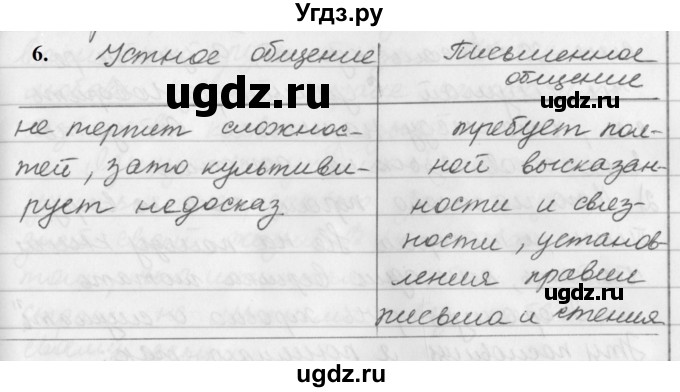 Угдз.ру
6. Устное общение
Письменное общение
ugdz.ru
ugdz.ru
не терпит сложнос-
тей, зато культиви-
рует недосказ
требует пол-
ной высказан-
ности и связ-
ности, установ-
ления правил
письма и чтения
ugdz.ru
ugdz.ru